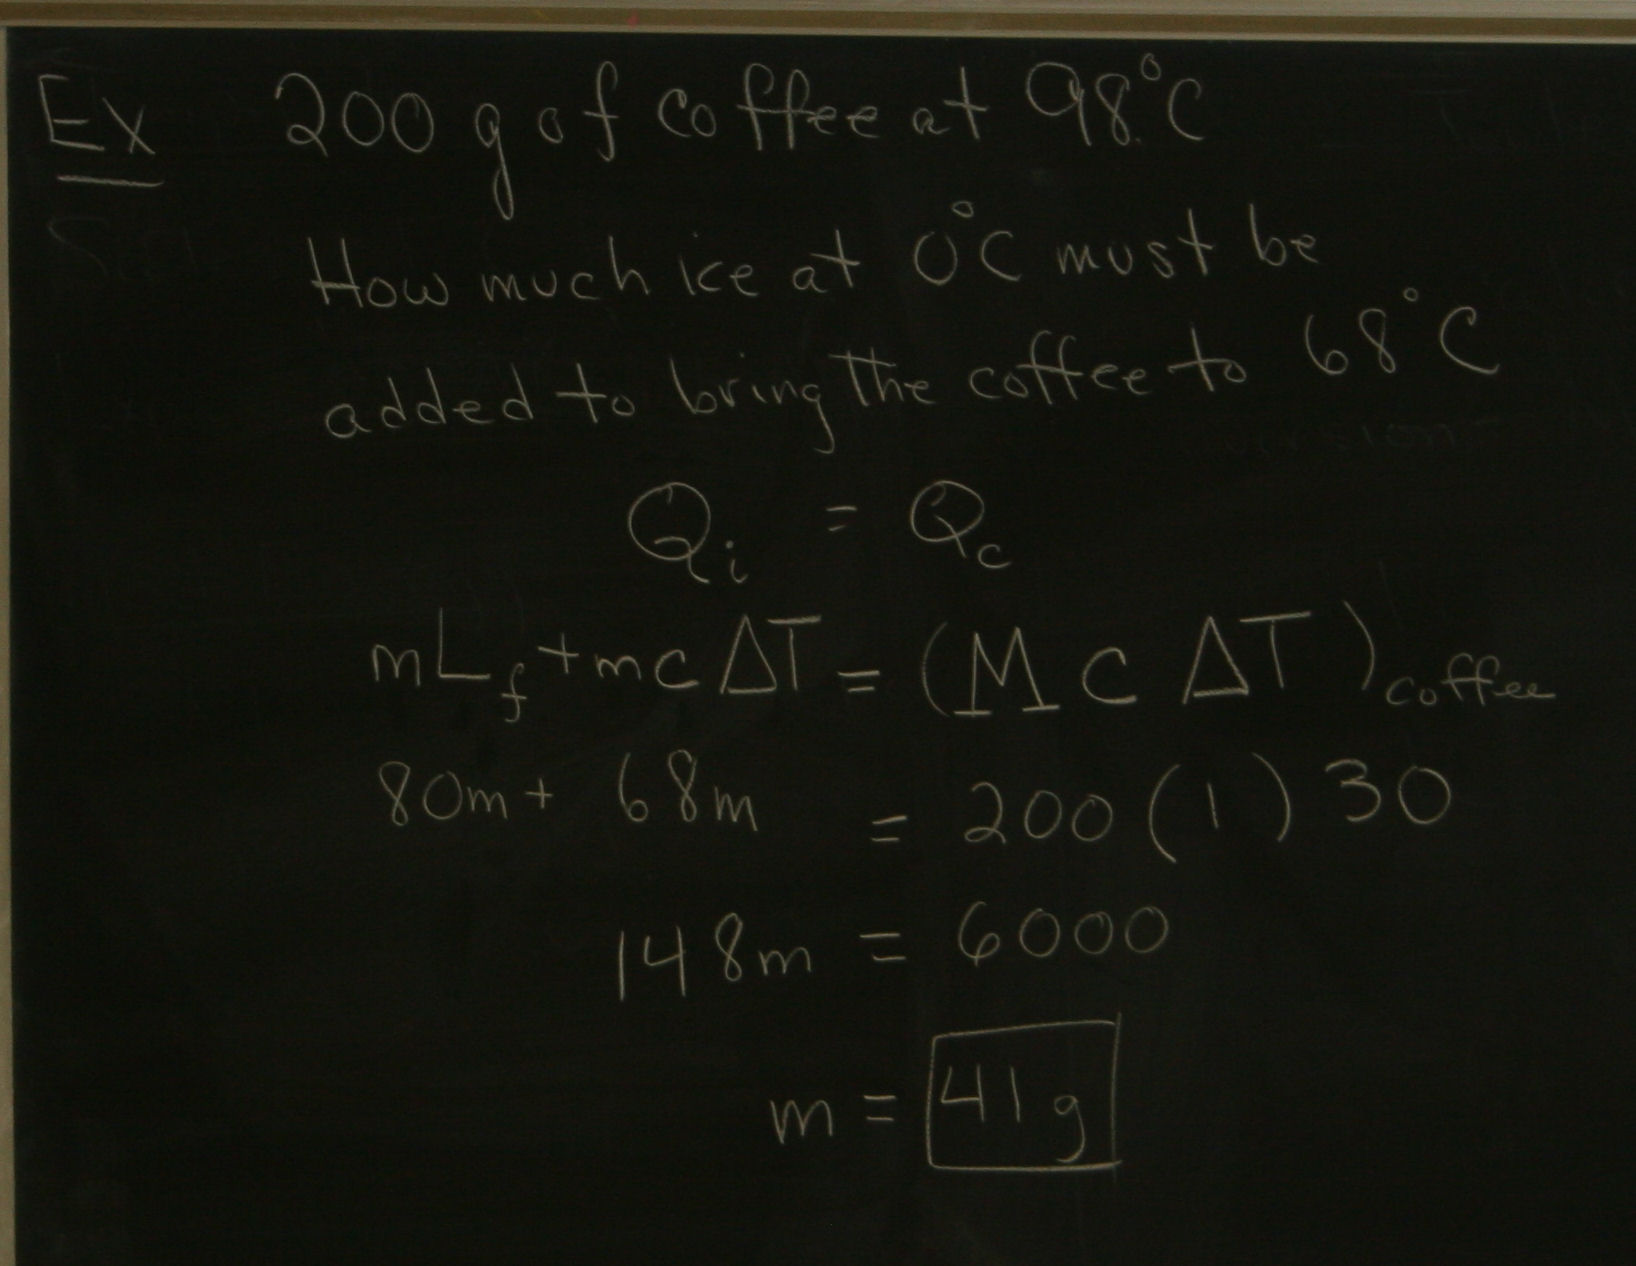 Ex 200 g of coffee at 98°C
How much ice at 0°C must be
added to bring the coffee to 68°C
Qi = Qc
mLf + mcΔT = (McΔT)coffee
80m + 68m = 200(1)30
148m = 6000
m = 41g